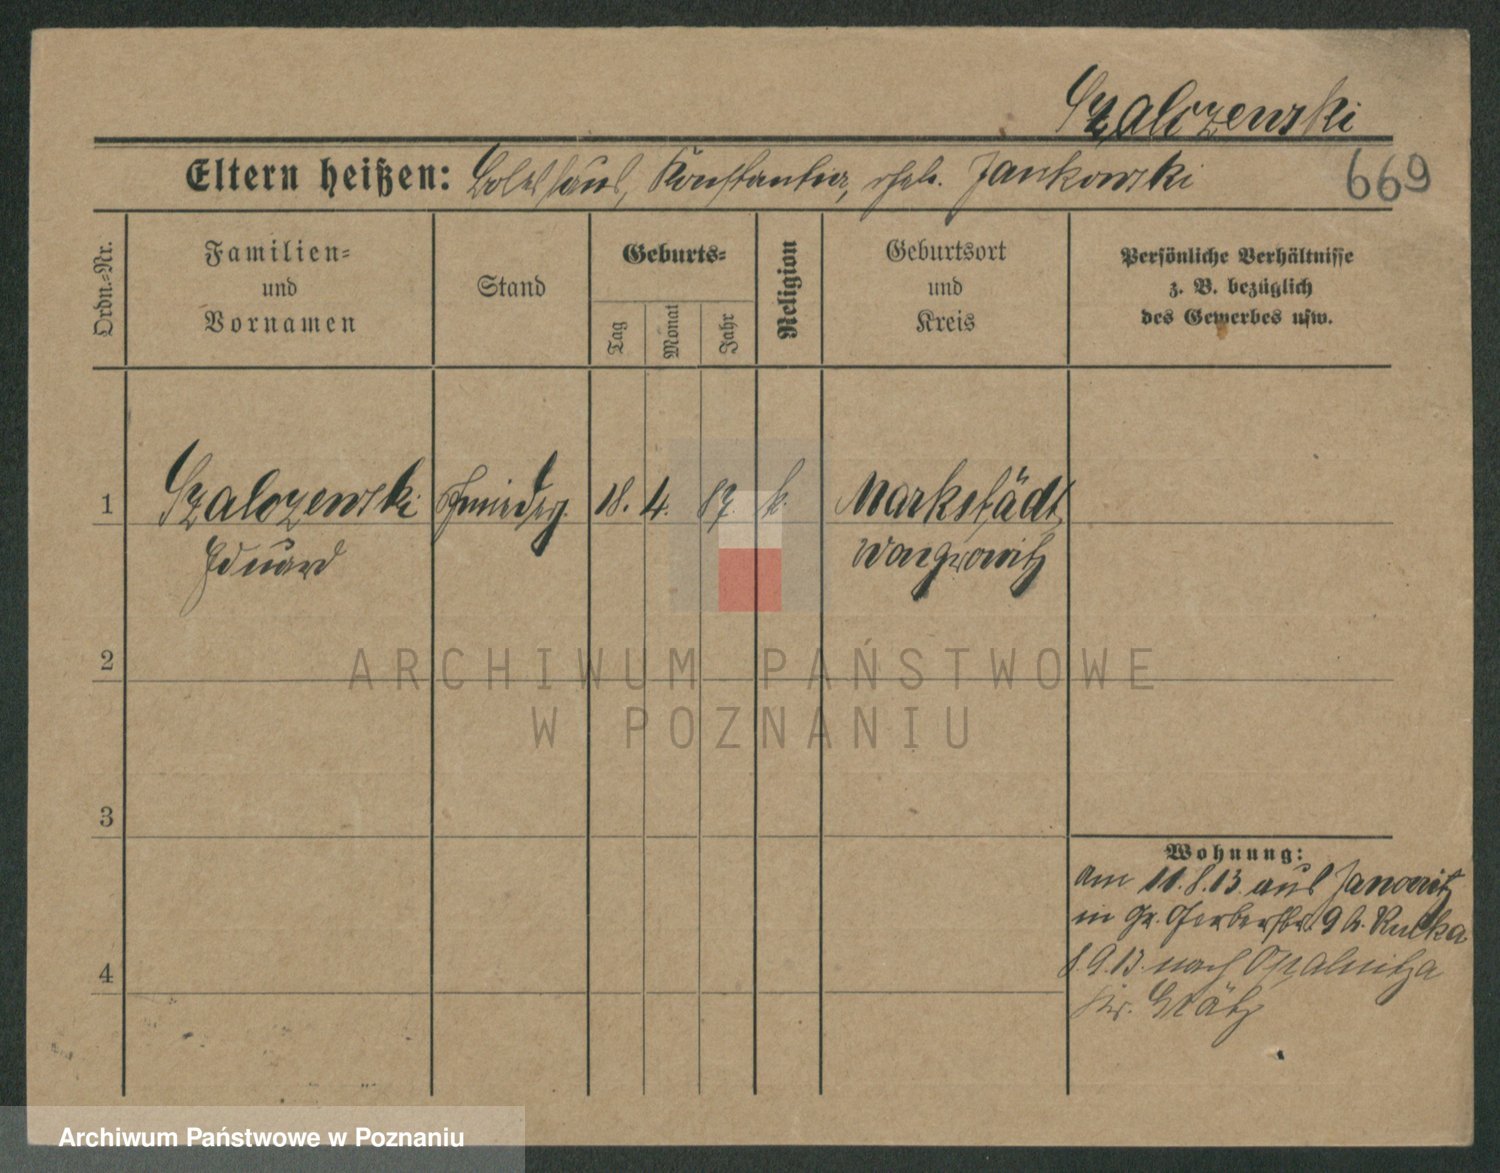 Szalczewski
Eltern heißen: Boleslaus, Konstantia, geb. Jankowski
669
Ordn.-Nr.
Familien-
und
Vornamen
Stand
Geburts-
Tag
Monat
Jahr
Religion
Geburtsort
und
Kreis
Persönliche Verhältnisse
z. B. bezüglich
des Gewerbes usw.
1 Szalczewski 18. 4. 87. k. Markstädt
Eduard Wongrowitz
2
ARCHIWUM PAŃSTWOWE
W POZNANIU
3
Wohnung:
am 11.8.13. aus Janowitz
in Gr. Gerberstr. 9 b. Rucka
4
8.9.13. nach Opalenitza
Kr. Grätz
Archiwum Państwowe w Poznaniu